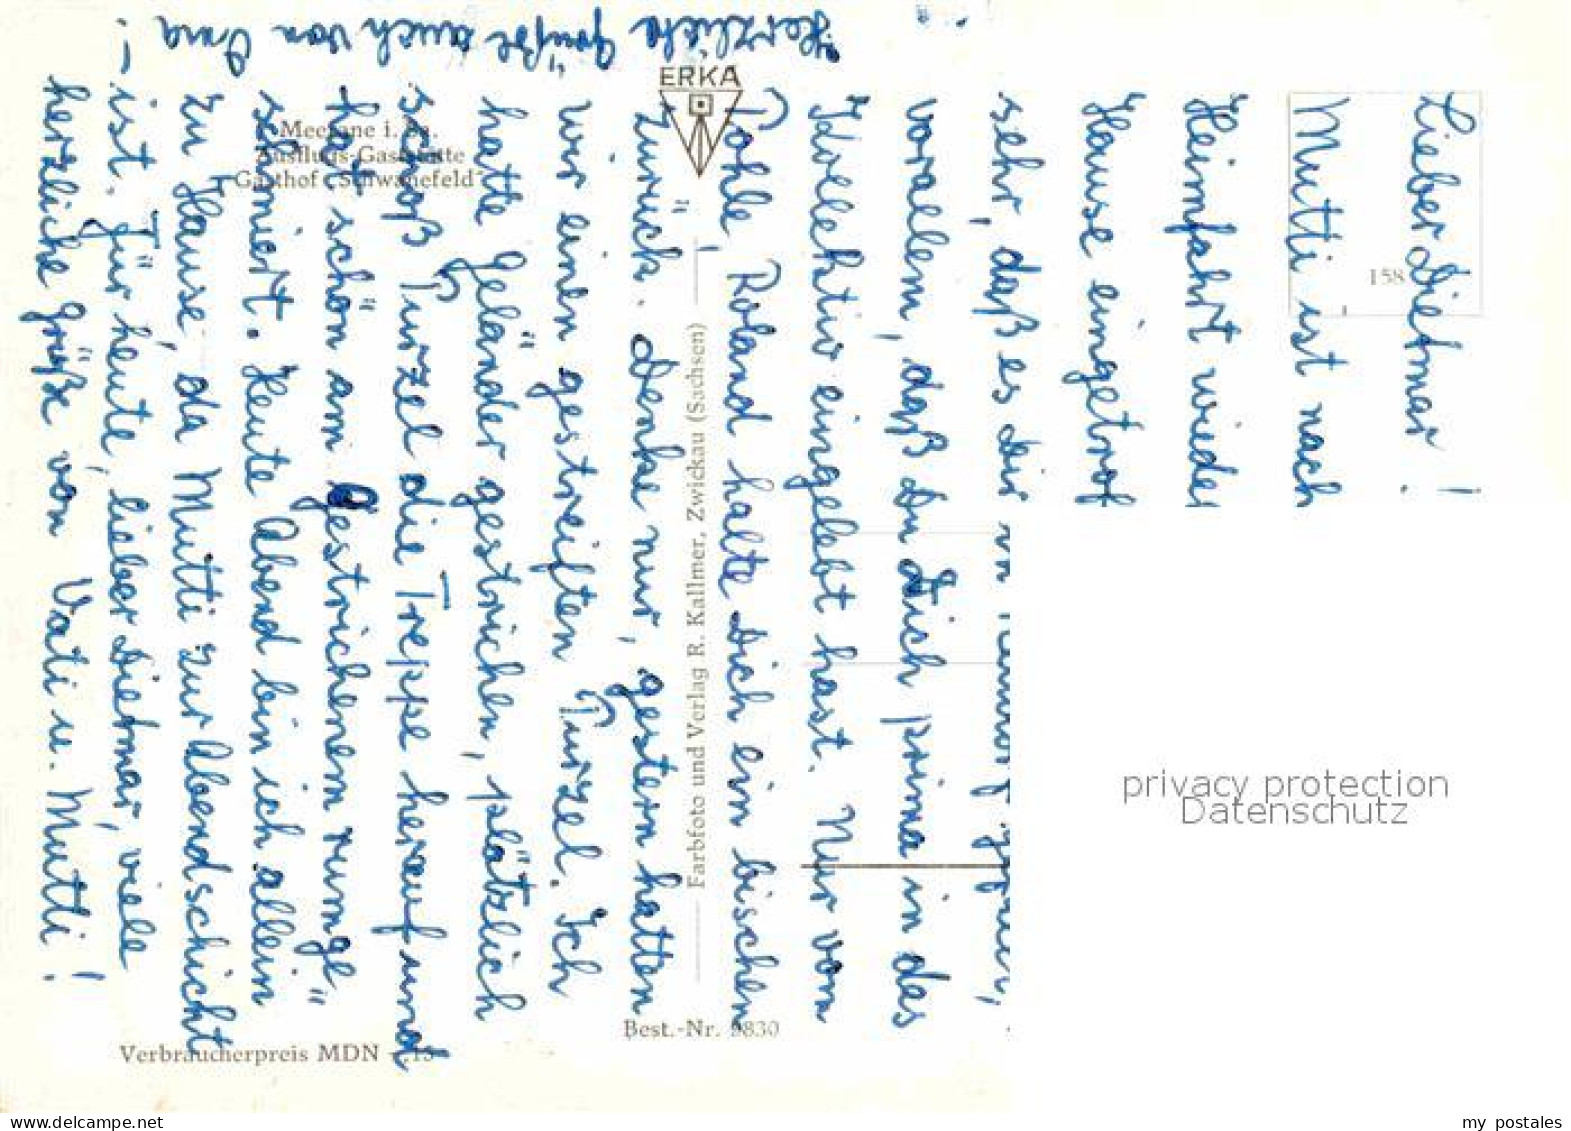 Lieber Dietmar!
Mutti ist nach
Heimfahrt wieder
Hause eingetrof
sehr, daß es dir in
vorallem, daß Du Dich prima in das
Kollektiv eingelebt hast. Nur vom
Pohle, Roland halte Dich ein bischen
zurück. Denke nur, gestern hatten
wir einen gestreiften Purzel. Ich
hatte Geländer gestrichen, plötzlich
schoß Purzel die Treppe herauf und
hat schön am gestrichenem rumge
schmiert. Heute Abend bin ich allein
zu Hause, da Mutti zur Abendschicht
ist. Für heute, lieber Dietmar, viele
herzliche Grüße von Vati u. Mutti!
Herzliche Grüße auch von Oma!
ERKA
Meerane i. Sa.
Ausflugs-Gaststätte
Gasthof „Schwanefeld"
158
Farbfoto und Verlag R. Kallmer, Zwickau (Sachsen)
Best.-Nr. 9830
Verbraucherpreis MDN -.15
privacy protection
Datenschutz
www.delcampe.net
my postales